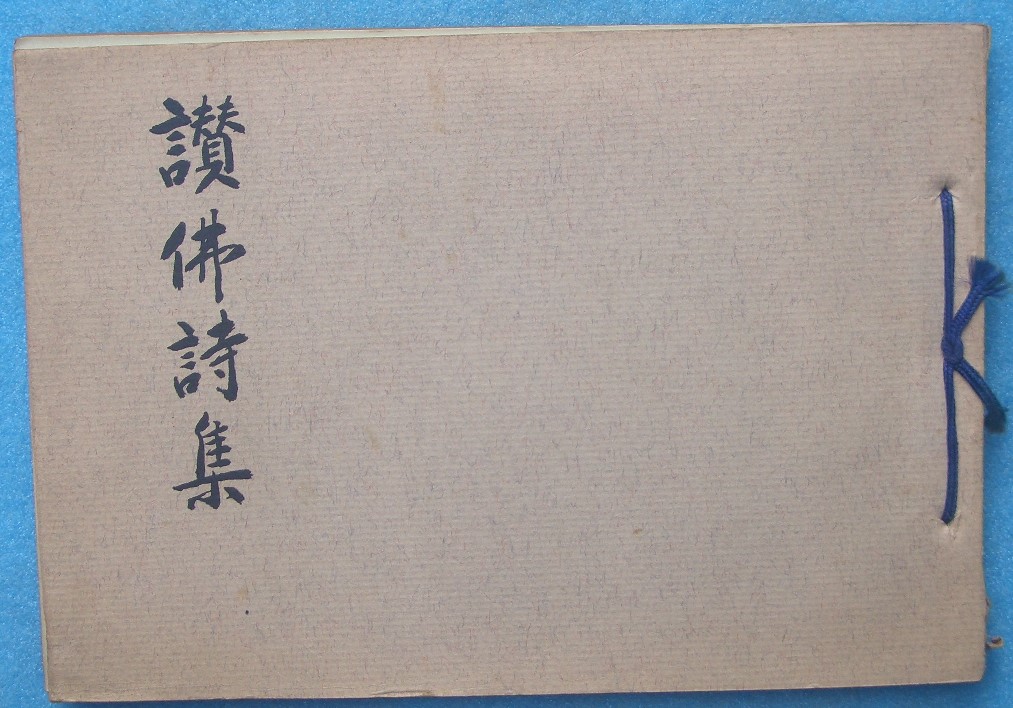 讃佛詩集